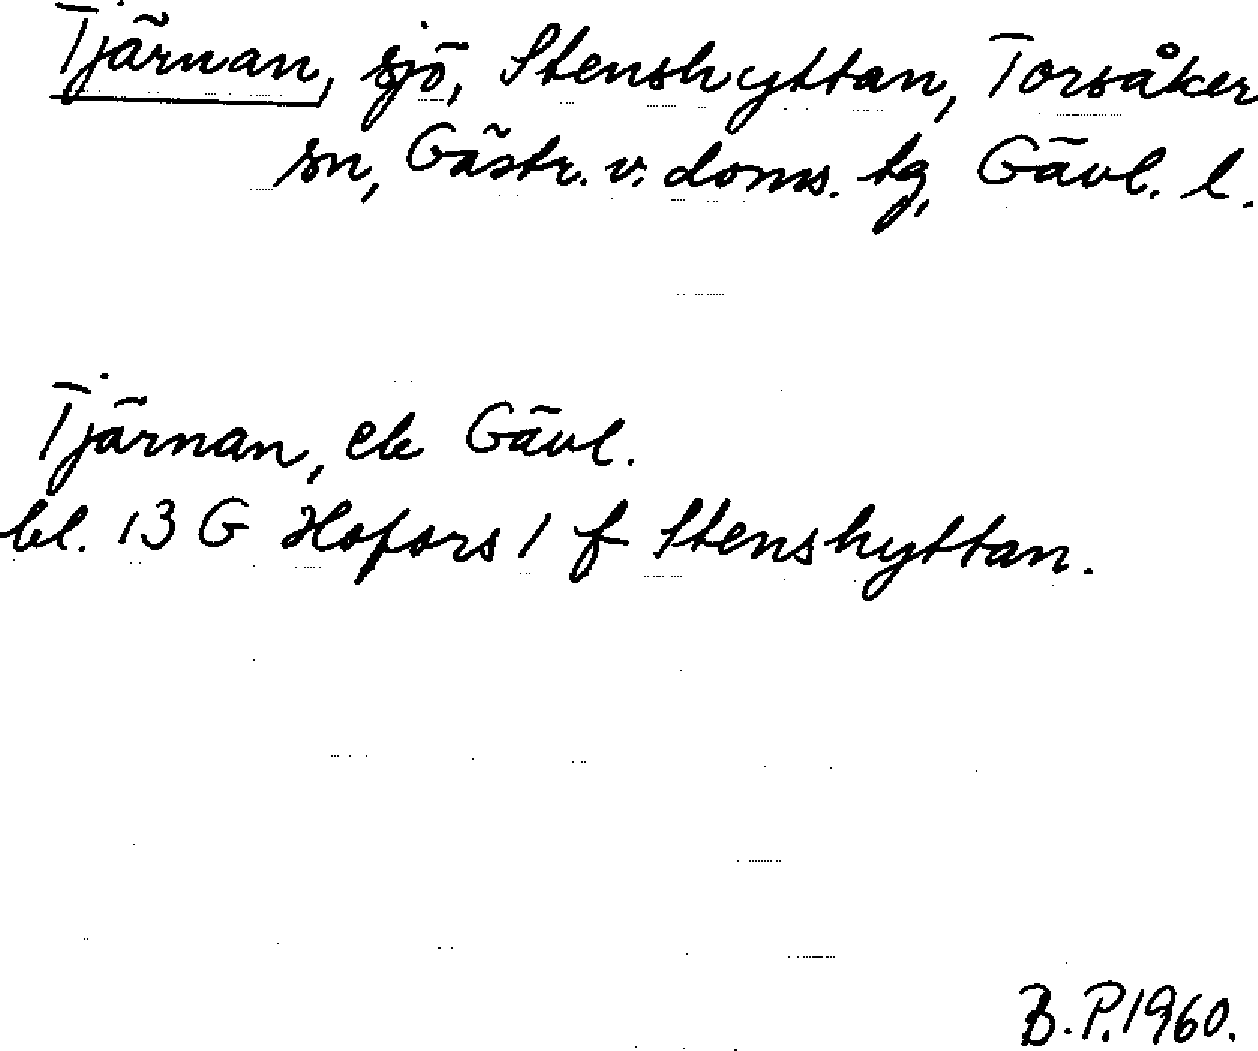 Tjärnan, sjö, Stenshyttan, Torsåker
sn, Gästr. v. doms. tg, Gävl. l.
Tjärnan, ek Gävl.
bl. 13 G Hofors 1 f Stenshyttan.
B.P. 1960.